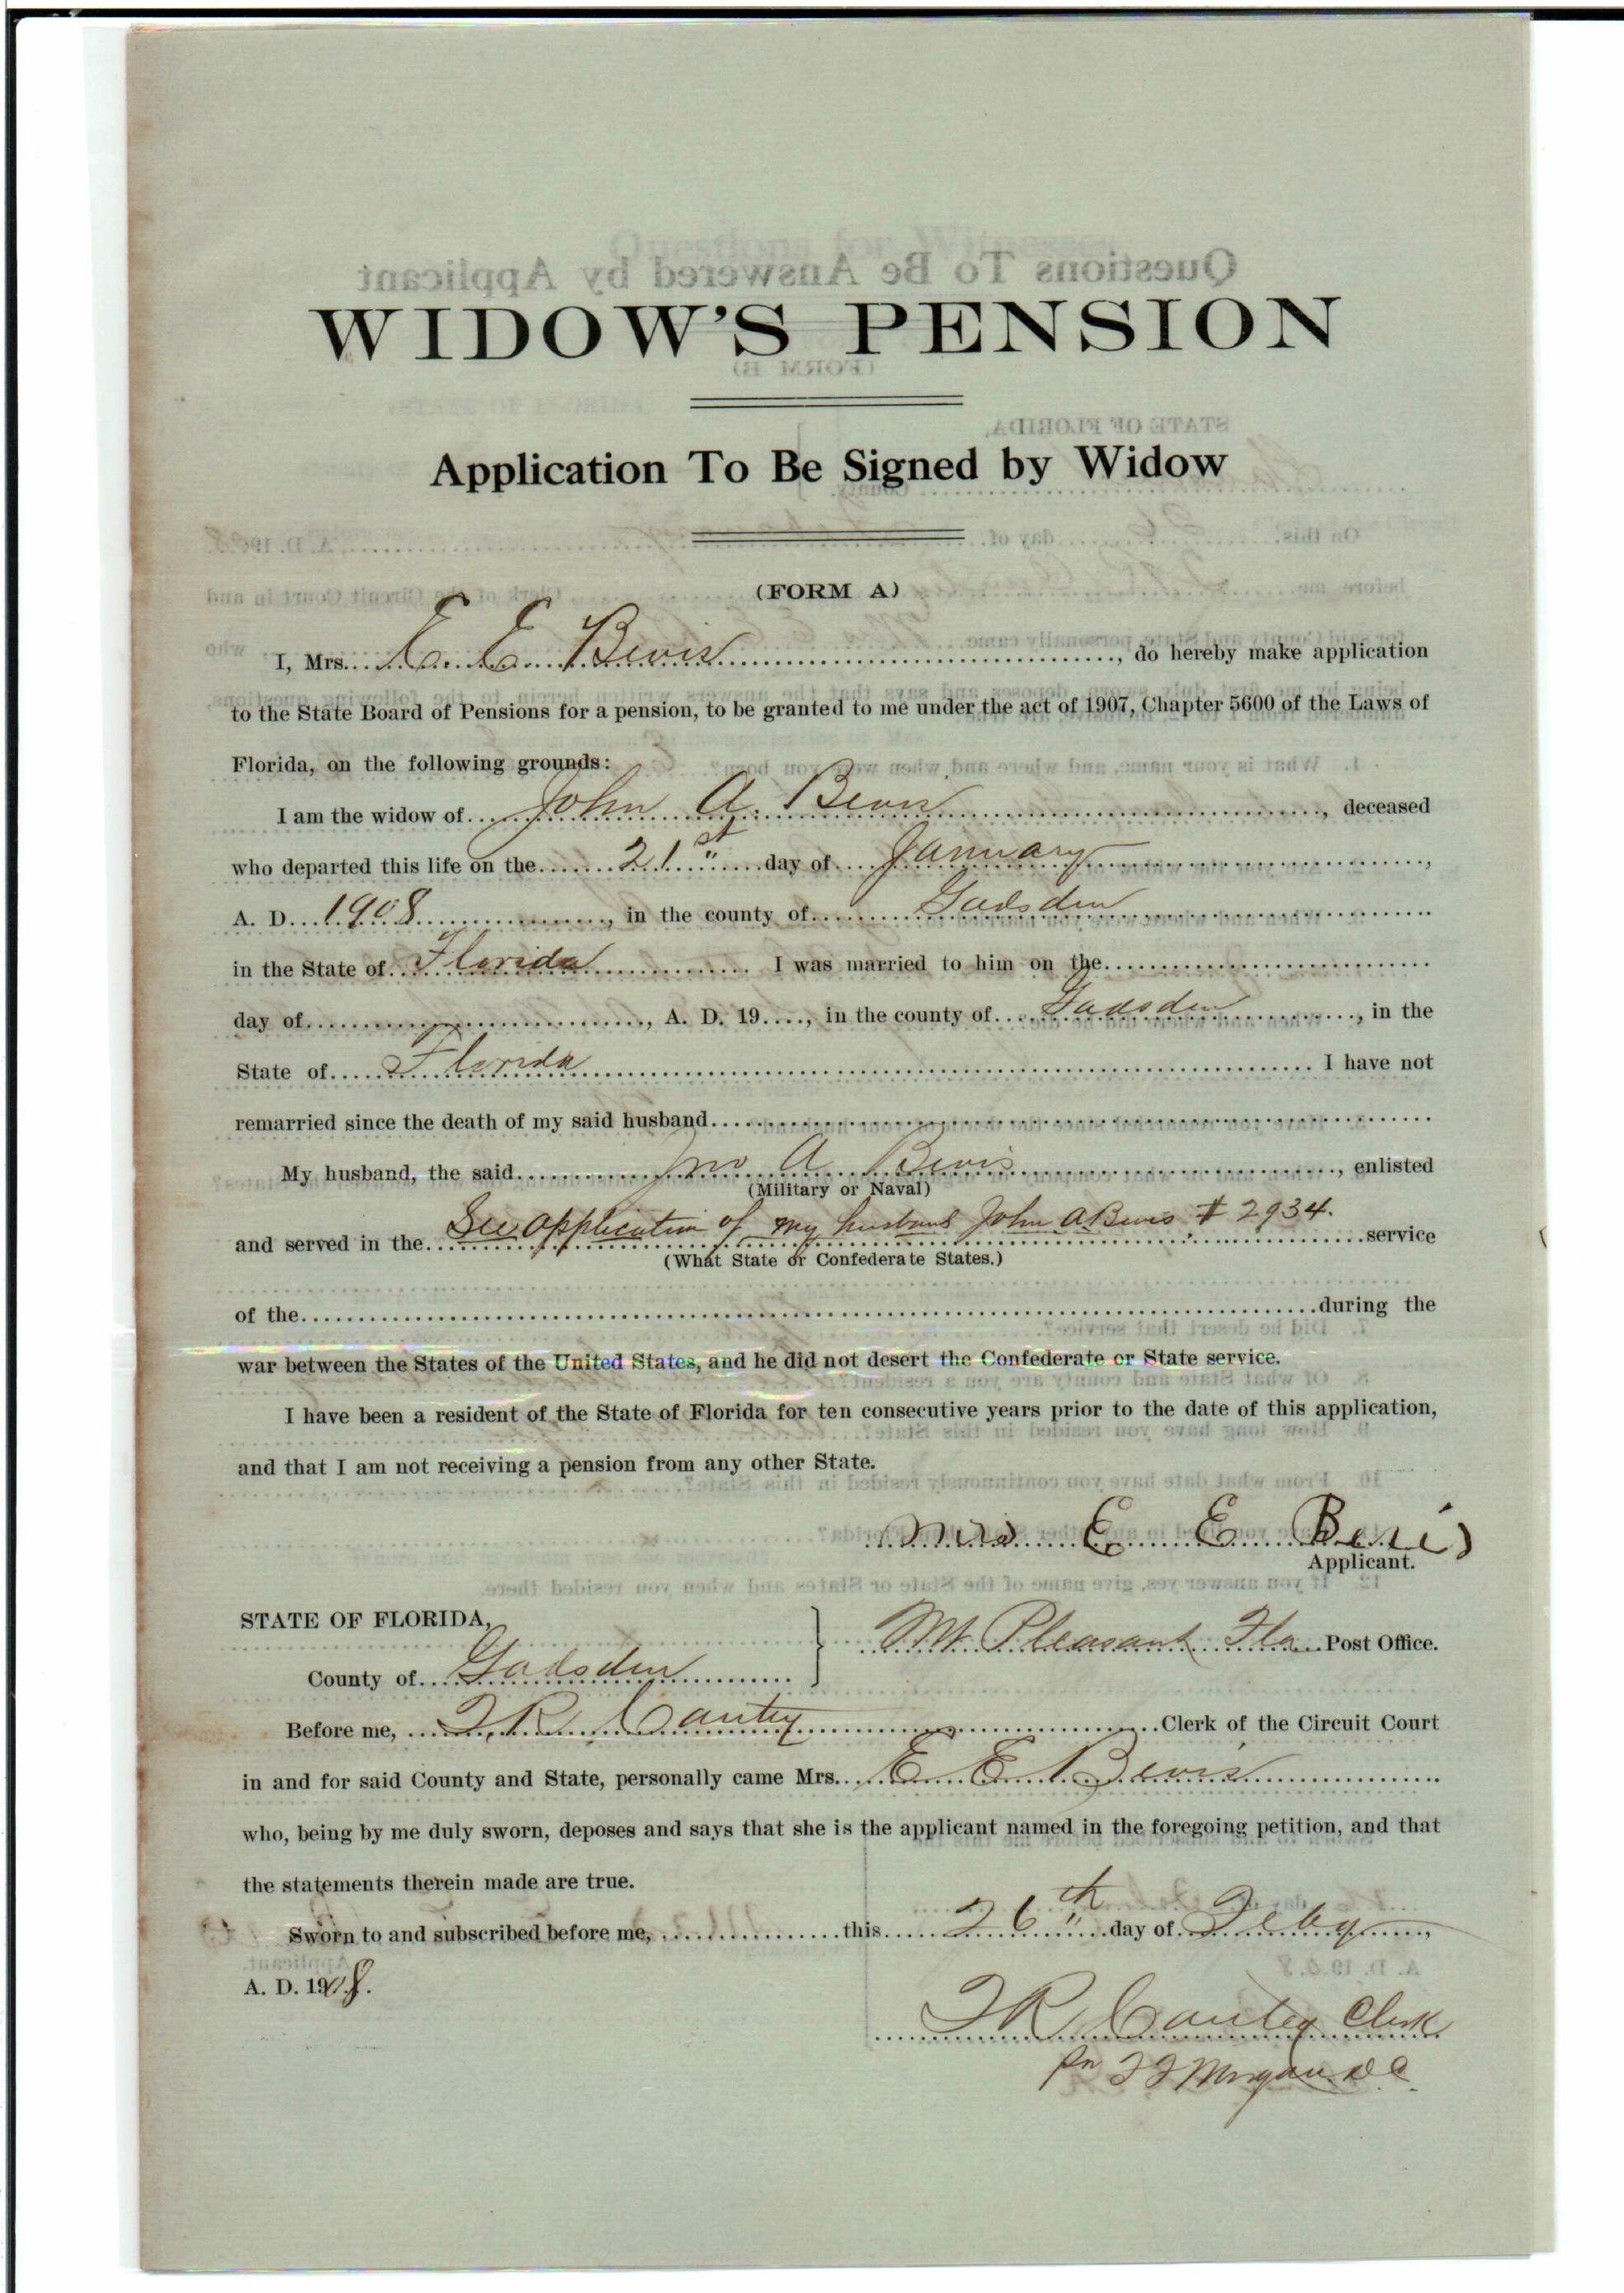 WIDOW'S PENSION
Application To Be Signed by Widow
(FORM A)
I, Mrs. E. E. Bevis, do hereby make application
to the State Board of Pensions for a pension, to be granted to me under the act of 1907, Chapter 5600 of the Laws of
Florida, on the following grounds:
I am the widow of John A. Bevis, deceased
who departed this life on the 21st day of January,
A. D. 1908, in the county of Gadsden
in the State of Florida I was married to him on the
day of, A. D. 19...., in the county of Gadsden, in the
State of Florida I have not
remarried since the death of my said husband
My husband, the said Jno A Bevis, enlisted
(Military or Naval)
and served in the See application of my husband John A. Bevis # 2934. service
(What State or Confederate States.)
of the during the
war between the States of the United States, and he did not desert the Confederate or State service.
I have been a resident of the State of Florida for ten consecutive years prior to the date of this application,
and that I am not receiving a pension from any other State.
Mrs E E Bevis
Applicant.
STATE OF FLORIDA,
Mt Pleasant Fla Post Office.
County of Gadsden
Before me, T. R. Cantey Clerk of the Circuit Court
in and for said County and State, personally came Mrs. E. E. Bevis
who, being by me duly sworn, deposes and says that she is the applicant named in the foregoing petition, and that
the statements therein made are true.
Sworn to and subscribed before me, this 26th day of Feby,
A. D. 1908.
T R Cantey Clerk
Morgan D C